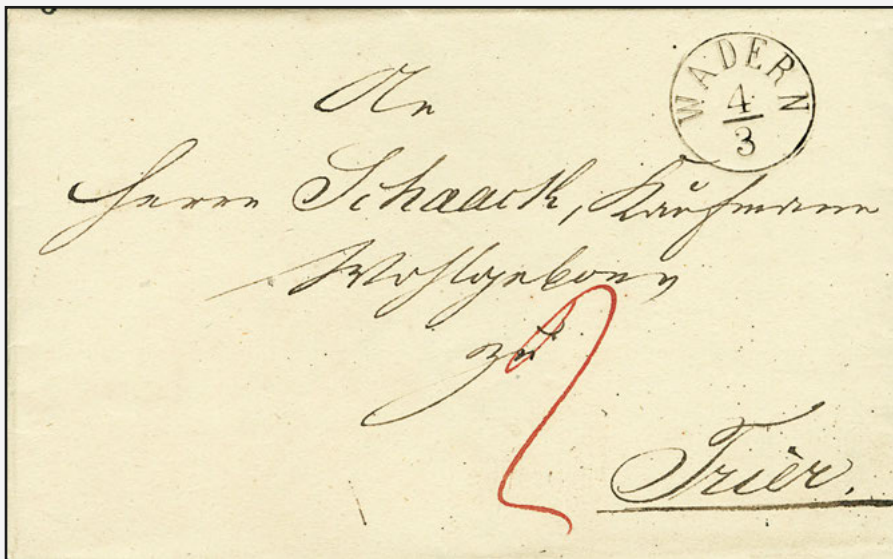 WADERN
4
3
An
Herrn Schaack, Kaufmann
Wohlgeboren
zu
2
Trier.